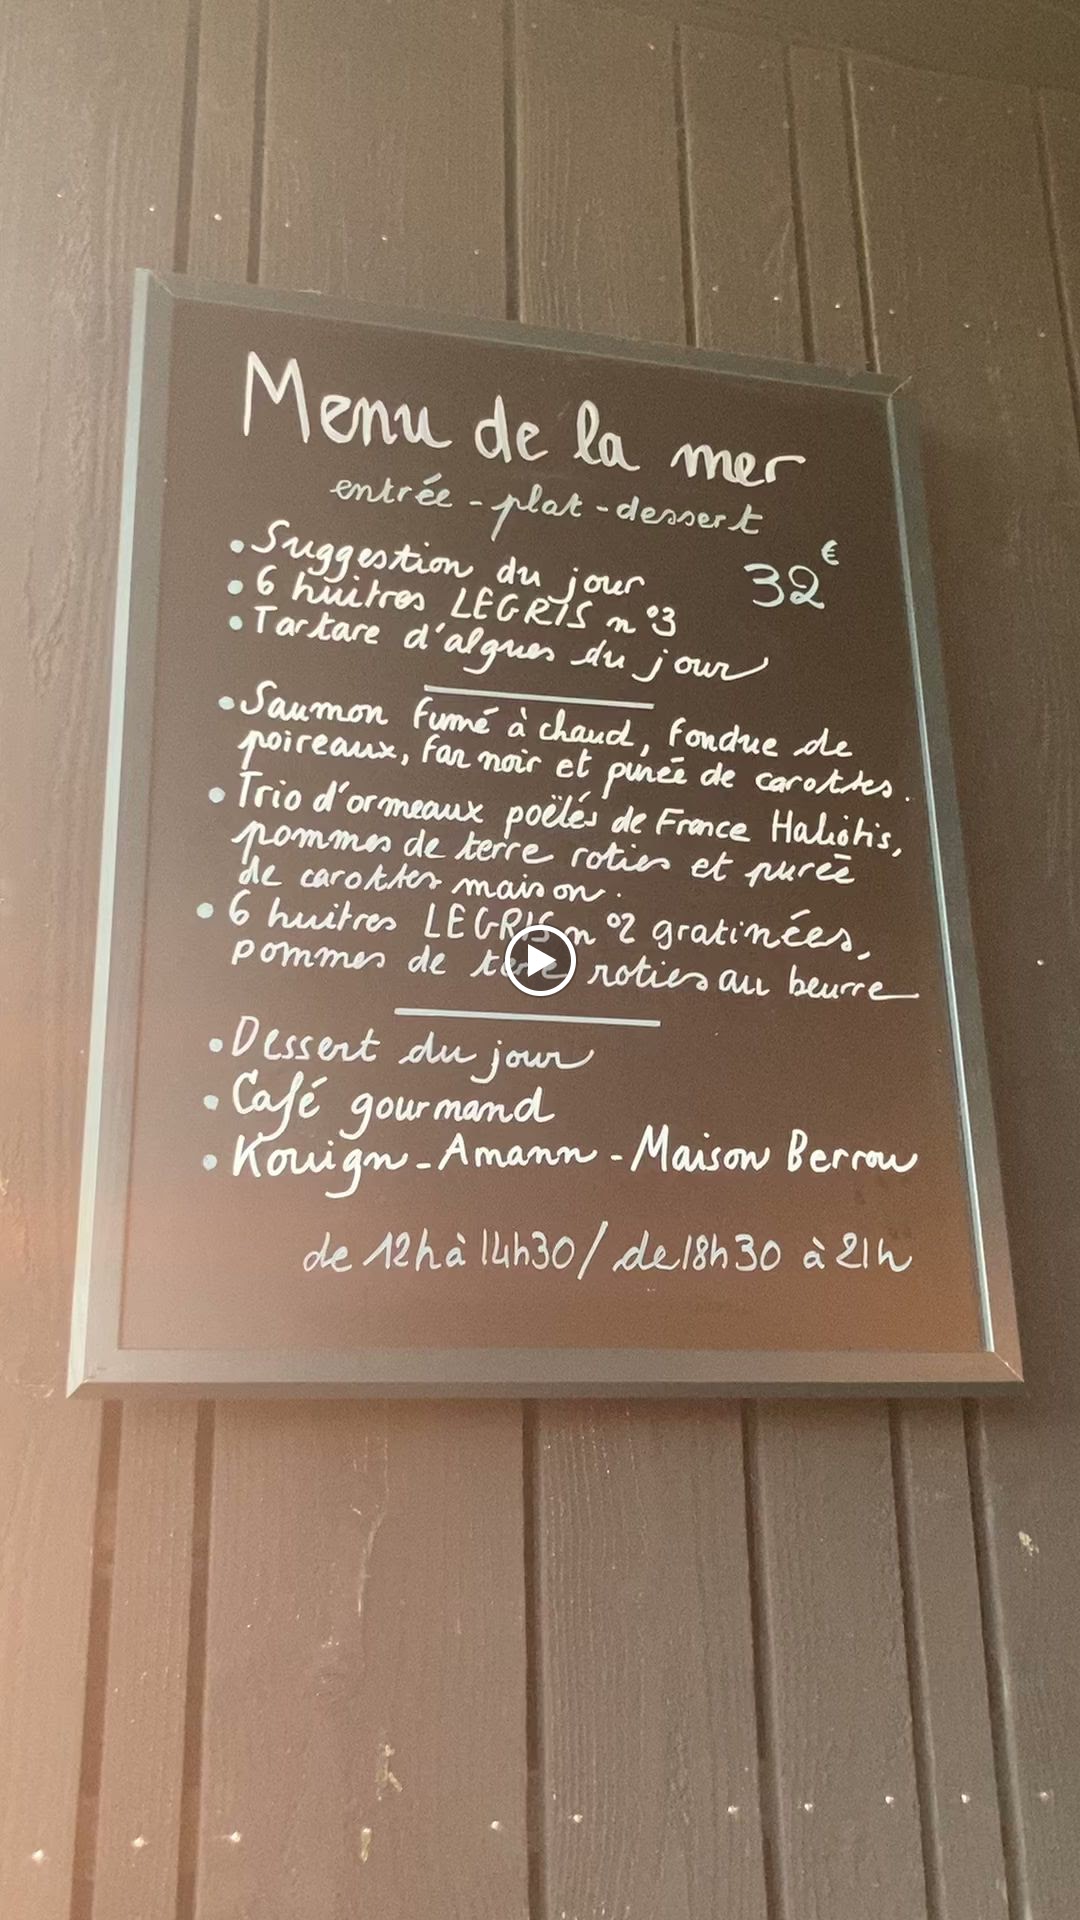 Menu de la mer
entrée - plat - dessert
32€
• Suggestion du jour
• 6 huitres LEGRIS n°3
• Tartare d'algues du jour
• Saumon fumé à chaud, fondue de
poireaux, far noir et purée de carottes.
• Trio d'ormeaux poëlés de France Haliotis,
pommes de terre roties et purée
de carottes maison.
• 6 huitres LEGRIS n°2 gratinées,
pommes de terre roties au beurre
• Dessert du jour
• Café gourmand
• Kouign-Amann - Maison Berrou
de 12h à 14h30 / de 18h30 à 21h